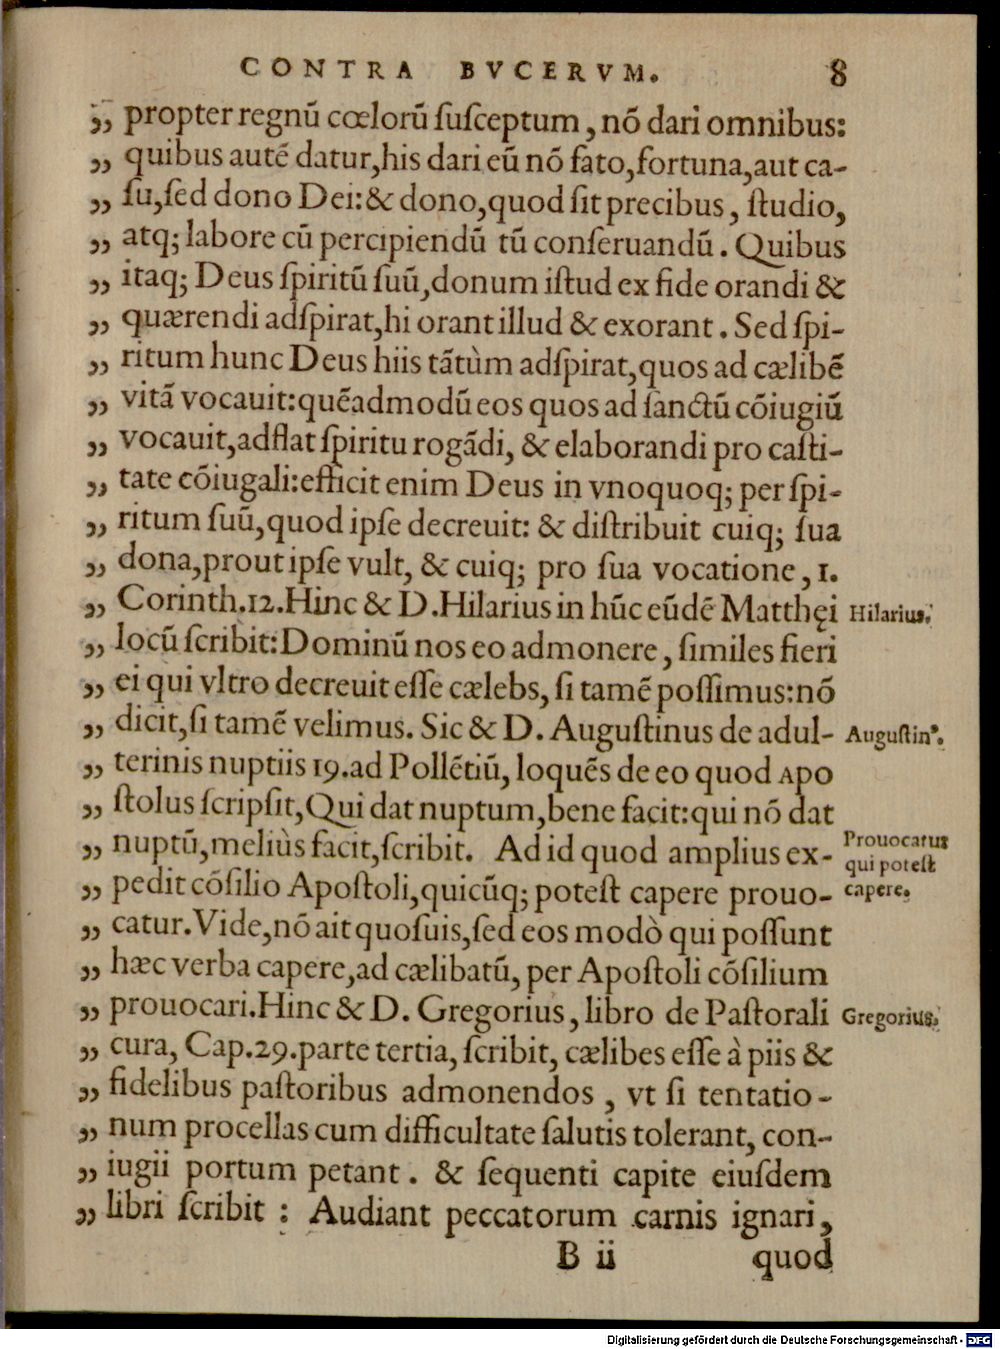 CONTRA BVCERVM. 8
„ propter regnũ cœlorũ ſuſceptum, nõ dari omnibus:
„ quibus autẽ datur, his dari eũ nõ fato, fortuna, aut ca-
„ ſu, ſed dono Dei: & dono, quod ſit precibus, ſtudio,
„ atq; labore cũ percipiendũ tũ conſeruandũ. Quibus
„ itaq; Deus ſpiritũ ſuũ, donum iſtud ex fide orandi &
„ quærendi adſpirat, hi orant illud & exorant. Sed ſpi-
„ ritum hunc Deus hiis tãtùm adſpirat, quos ad cælibẽ
„ vitã vocauit: quẽadmodũ eos quos ad ſanctũ cõiugiũ
„ vocauit, adflat ſpiritu rogãdi, & elaborandi pro caſti-
„ tate cõiugali: efficit enim Deus in vnoquoq; per ſpi-
„ ritum ſuũ, quod ipſe decreuit: & diſtribuit cuiq; ſua
„ dona, prout ipſe vult, & cuiq; pro ſua vocatione, 1.
„ Corinth. 12. Hinc & D. Hilarius in hũc eũdẽ Matthęi Hilarius.
„ locũ ſcribit: Dominũ nos eo admonere, ſimiles fieri
„ ei qui vltro decreuit eſſe cælebs, ſi tamẽ poſſimus: nõ
„ dicit, ſi tamẽ velimus. Sic & D. Auguſtinus de adul- Auguſtinꝰ.
„ terinis nuptiis 19. ad Pollẽtiũ, loquẽs de eo quod Apo
„ ſtolus ſcripſit, Qui dat nuptum, bene facit: qui nõ dat
„ nuptũ, meliùs facit, ſcribit. Ad id quod amplius ex- Prouocatur
„ pedit cõſilio Apoſtoli, quicũq; poteſt capere prouo- qui poteſt
capere.
„ catur. Vide, nõ ait quoſuis, ſed eos modò qui poſſunt
„ hæc verba capere, ad cælibatũ, per Apoſtoli cõſilium
„ prouocari. Hinc & D. Gregorius, libro de Paſtorali Gregorius.
„ cura, Cap. 29. parte tertia, ſcribit, cælibes eſſe à piis &
„ fidelibus paſtoribus admonendos, vt ſi tentatio-
„ num procellas cum difficultate ſalutis tolerant, con-
„ iugii portum petant. & ſequenti capite eiuſdem
„ libri ſcribit: Audiant peccatorum carnis ignari,
B ii quod
Digitalisierung gefördert durch die Deutsche Forschungsgemeinschaft - DFG